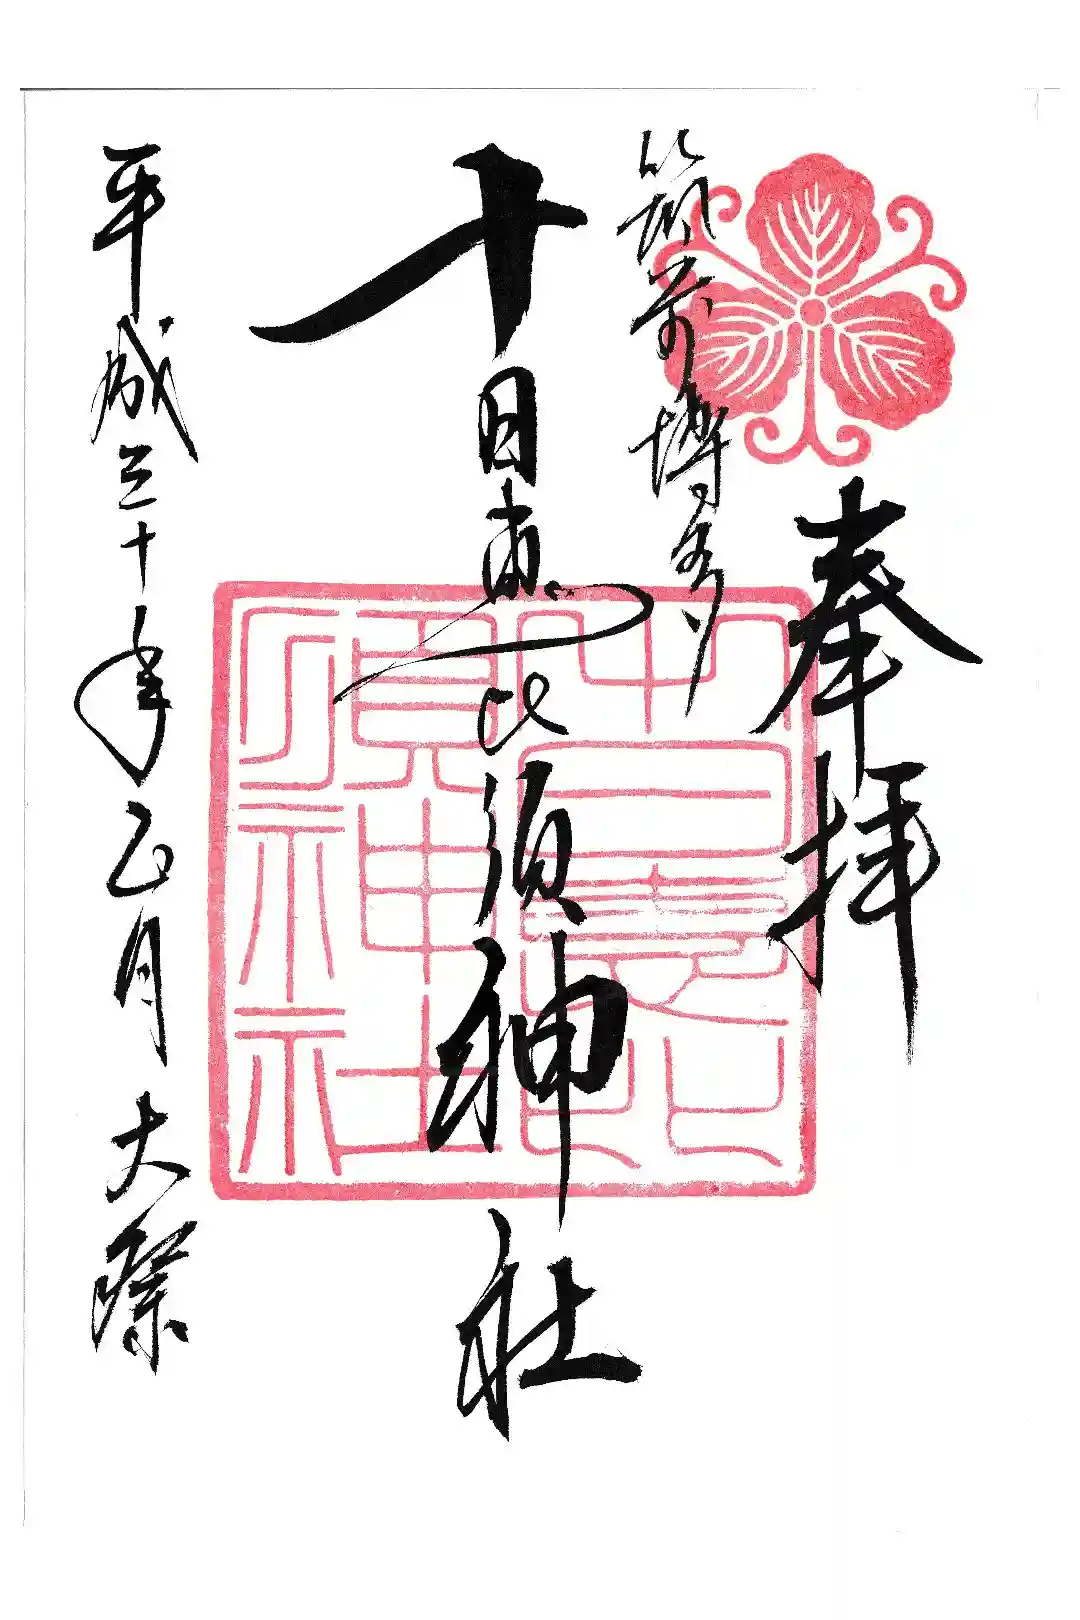 奉拝
筑前博多
十日恵比須神社
平成三十年正月大祭
十日恵比
須神社